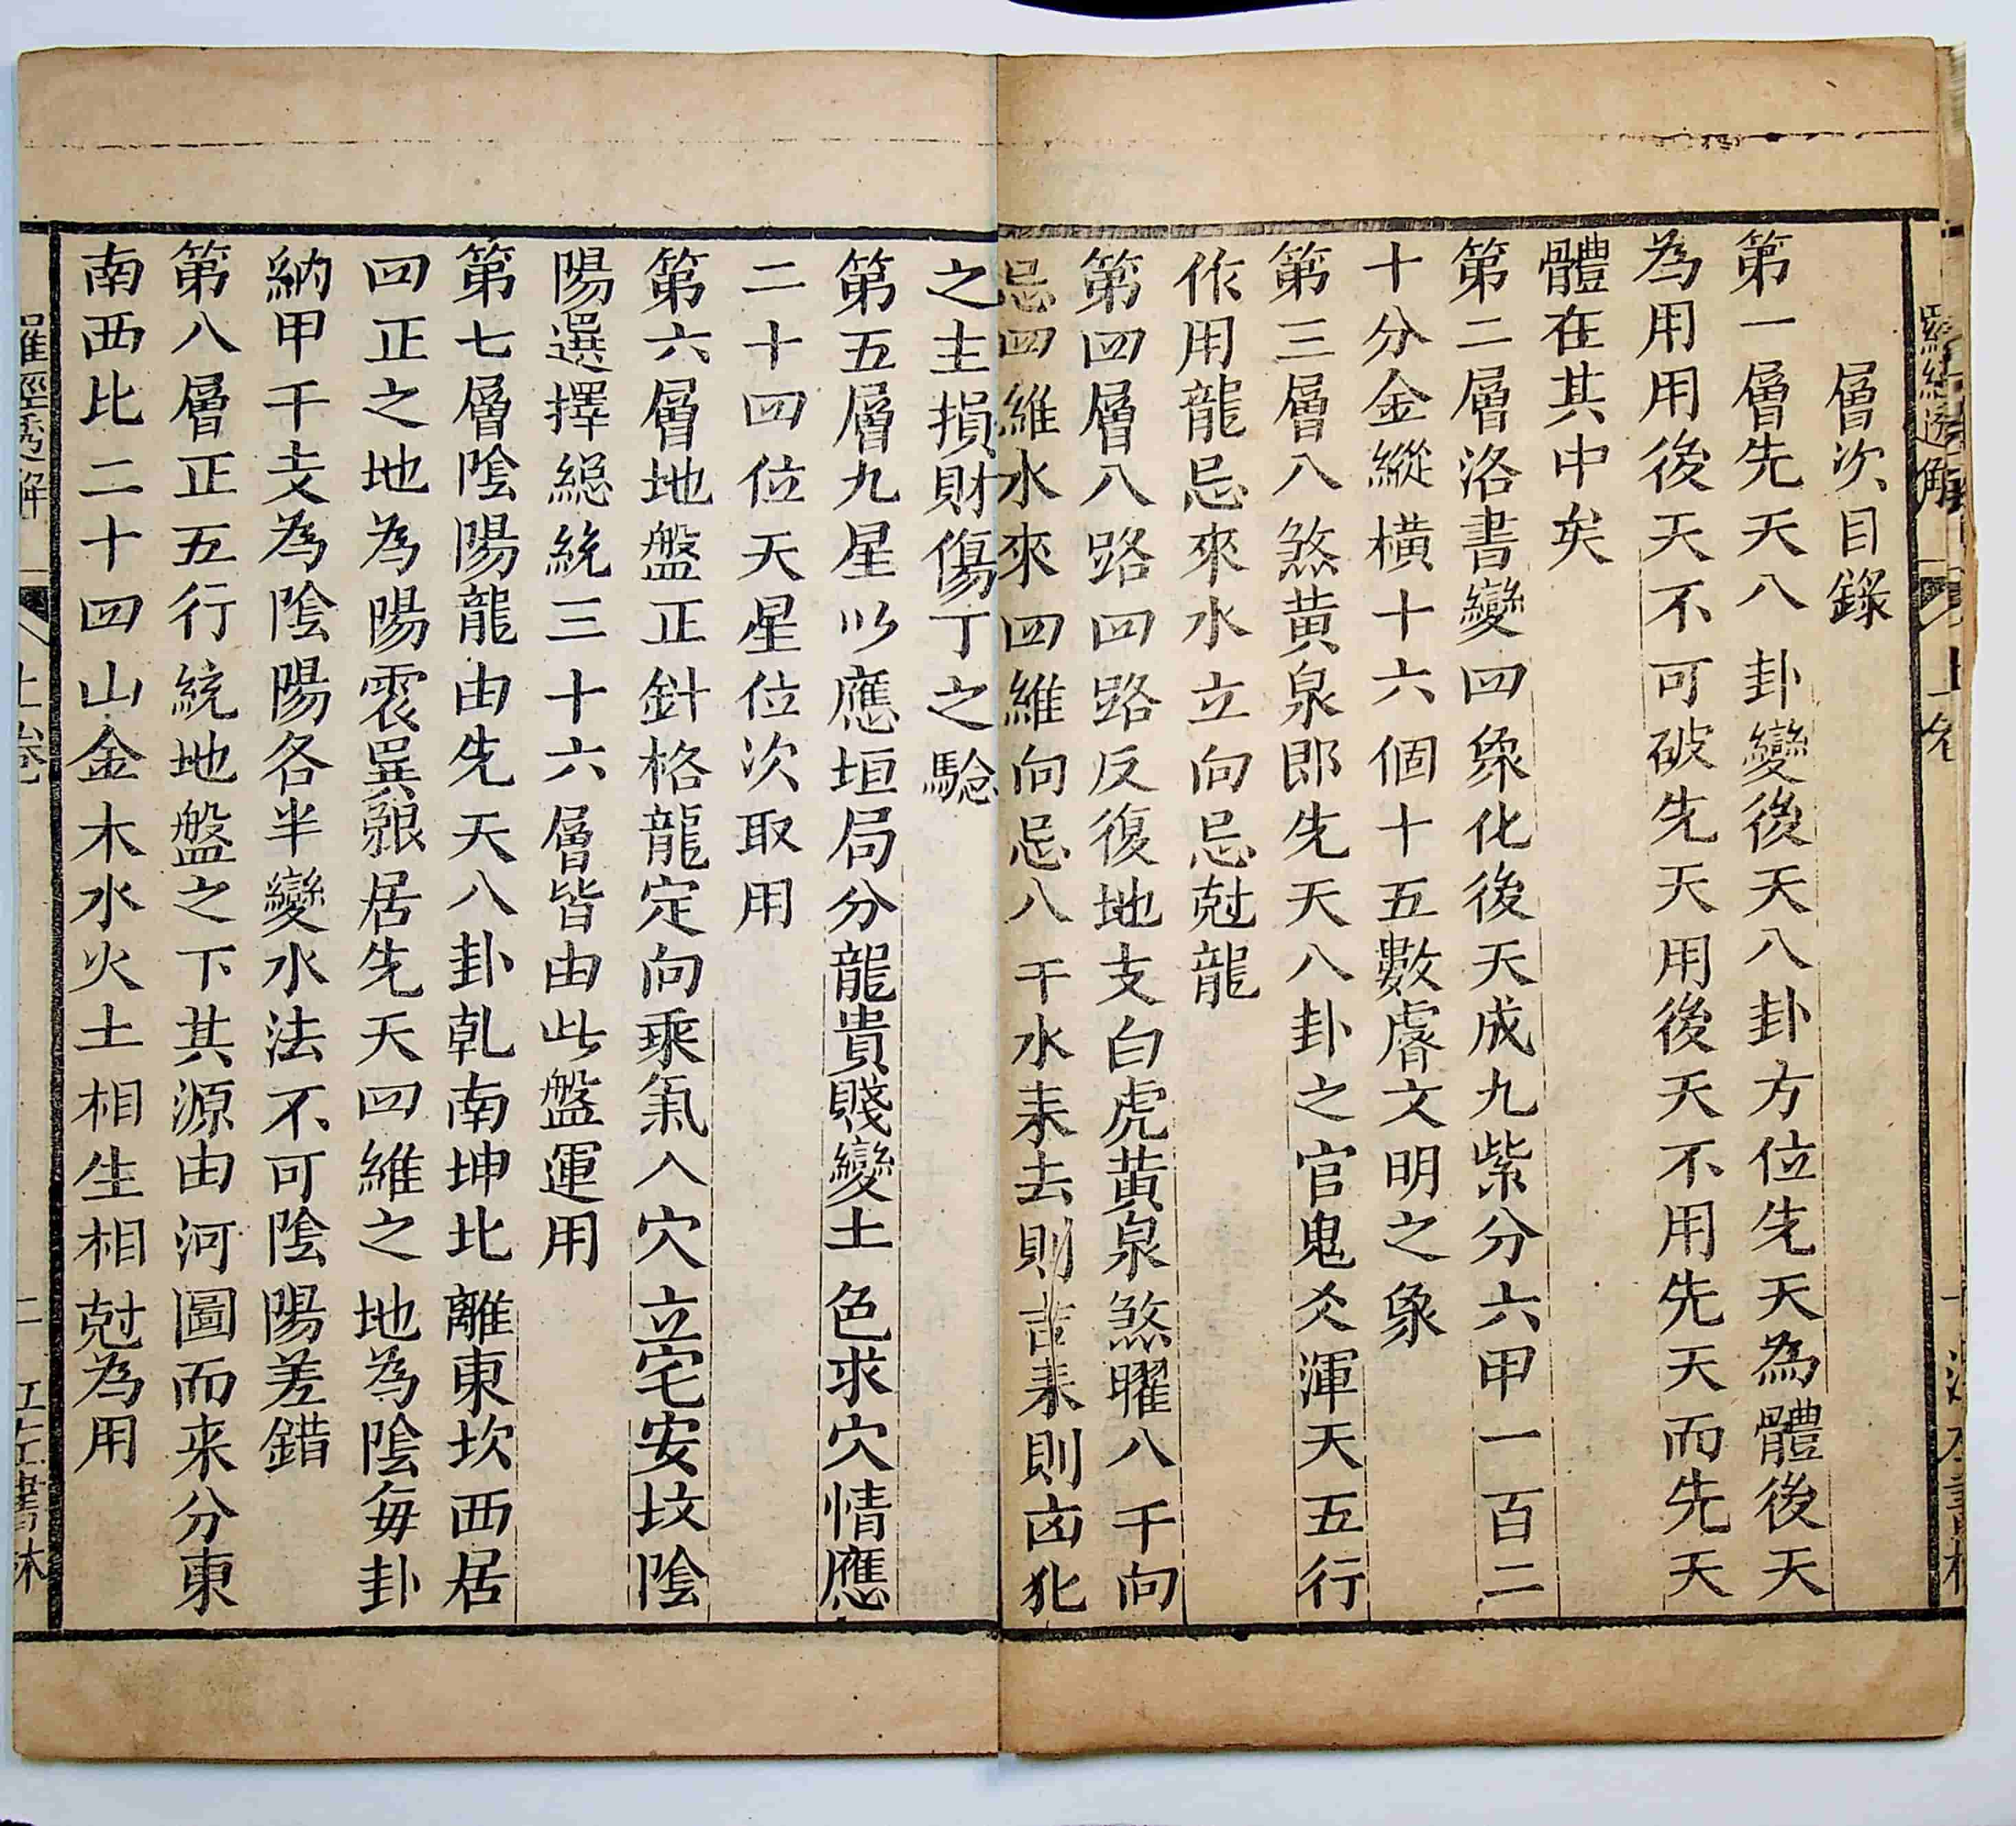 層次目錄
第一層先天八卦變後天八卦方位先天為體後天
為用用後天不可破先天用後天不用先天而先天
體在其中矣
第二層洛書變四象化後天成九紫分六甲一百二
十分金縱橫十六個十五數睿文明之象
第三層八煞黃泉郎先天八卦之官鬼爻渾天五行
作用龍忌來水立向忌尅龍
第四層八路四路反復地支白虎黃泉煞曜八干向
忌四維水來四維向忌八干水耒去則吉耒則凶犯
之主損財傷丁之驗
第五層九星以應垣局分龍貴賤變土色求穴情應
二十四位天星位次取用
第六層地盤正針格龍定向乘氣入穴立宅安坟陰
陽選擇總統三十六層皆由此盤運用
第七層陰陽龍由先天八卦乾南坤北離東坎西居
四正之地為陽震巽艮居先天四維之地為陰每卦
納甲干支為陰陽各半變水法不可陰陽差錯
第八層正五行統地盤之下其源由河圖而来分東
南西北二十四山金木水火土相生相尅為用
羅經透解
上卷
二